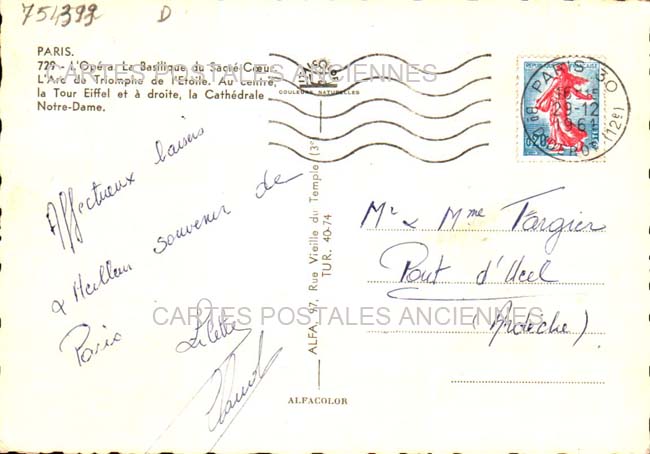 751399 D
PARIS.
729 - L'Opéra La Basilique du Sacré-Cœur
L'Arc de Triomphe de l'Etoile. Au centre,
la Tour Eiffel et à droite, la Cathédrale
Notre-Dame.
COULEURS NATURELLES
CARTES POSTALES ANCIENNES
PARIS 30
29-12
1961
Bd DIDEROT (12e)
0,20
Affectueux baisers
& Meilleur souvenir de
Paris
Lilette
ALFA, 97, Rue Vieille du Temple (3e)
TUR. 40-74
Mr & Mme Fargier
Pont d'Ucel
(Ardèche)
CARTES POSTALES ANCIENNES
ALFACOLOR